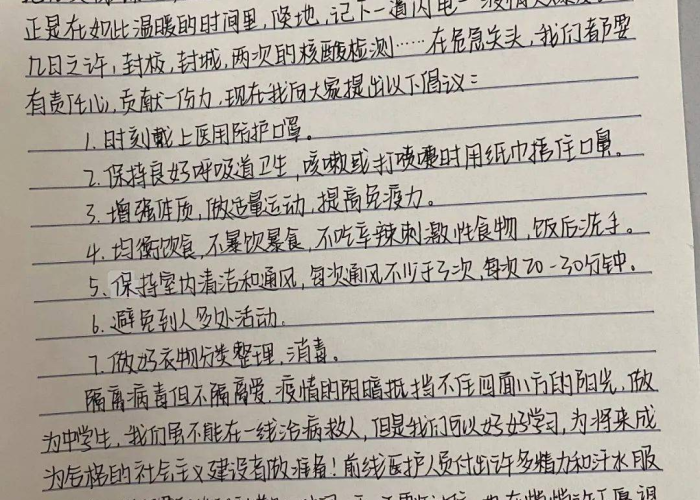 正是在如此温暖的时间里,倏地,记下一道闪电—疫情
几日之许,封板,封城,两次的核酸检测……在危急关头,我们都要
有责任心,贡献一份力,现在我向大家提出以下倡议:
1. 时刻戴上医用防护口罩。
2. 保持良好呼吸道卫生,咳嗽或打喷嚏时用纸巾捂住口鼻。
3. 增强体质,做适量运动,提高免疫力。
4. 均衡饮食,不暴饮暴食,不吃辛辣刺激性食物,饭后洗手。
5、保持室内清洁和通风,每次通风不少于3次,每次20-30分钟。
6. 避免到人多处活动.
7. 做好衣物分类整理,消毒。
隔离病毒但不隔离爱,疫情的阴暗抵挡不住四面八方的阳光,做
为中学生,我们虽不能在一线治病救人,但是我们可以好好学习,为将来成
为合格的社会主义建设者做准备!前线医护人员付出许多精力和汗水服